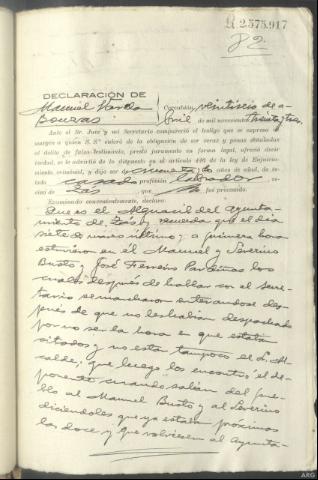 R 2.575.917
82
DECLARACIÓN DE
Manuel
Bouzas
veintiseis de a-
bril de mil novecientos treinta y tres.
Ante el Sr. Juez y mi Secretario compareció el testigo que se expresa
margen a quien S. Sª enteró de la obligación de ser veraz y penas señaladas
al delito de falso testimonio, prestó juramento en forma legal, ofreció decir
verdad, se le advirtió de lo dispuesto en el artículo 446 de la ley de Enjuicia-
miento criminal, y dijo ser de cincuenta años de edad, de es-
tado casado profesión labrador, ve-
cino de Zas que no fué procesado.
Examinado convenientemente, declara:
Que es el Alguacil del Ayunta-
miento de Zas y recuerda que el día
siete de marzo último, a primera hora
estuvieron en él Manuel y Severino
Busto y José Ferreiro Pardiñas los
cuales después de hablar con el Secre-
tario se marcharon enterandose des-
pués de que no les habían despachado
por no ser la hora en que estaban
citados y no estar tampoco el Sr. Al-
calde; que luego los encontró el de-
ponente cuando salían del pue-
blo al Manuel Busto y al Severino
diciendoles que ya estaban próximas
las doce y que volviesen al Ayunta-
ARG